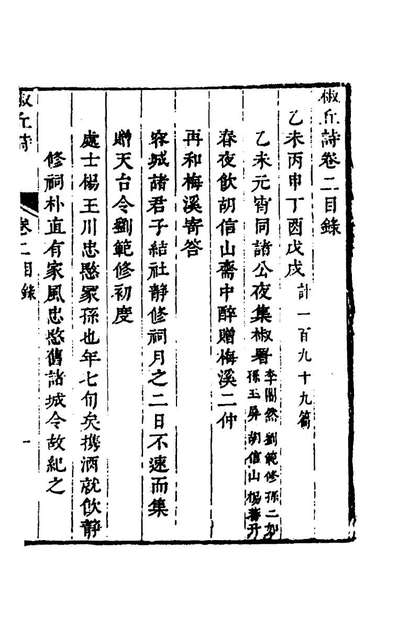 椒丘詩卷二目錄
乙未丙申丁酉戊戌計一百九十九篇
乙未元宵同諸公夜集椒署李闇然劉範修孫二如
孫玉屏胡信山楊蓊升
春夜飲胡信山齋中醉贈梅溪二仲
再和梅溪寄答
容城諸君子結社靜修祠月之二日不速而集
贈天台令劉範修初度
處士楊王川忠愍冢孫也年七旬矣携酒就飲靜
修祠朴直有家風忠愍舊諸城令故紀之
椒丘詩
卷二目錄
一